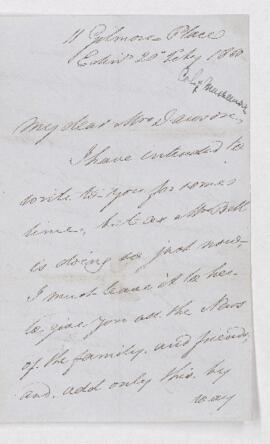 11 Gilmore Place
Edinr 20 Feby 1860
My dear Mrs Dawson,
I have intended to
write to you for some
time, but as Mrs Bell
is doing so just now
I must leave it to her
to give you all the News
of the family and friends,
and add only this by
way